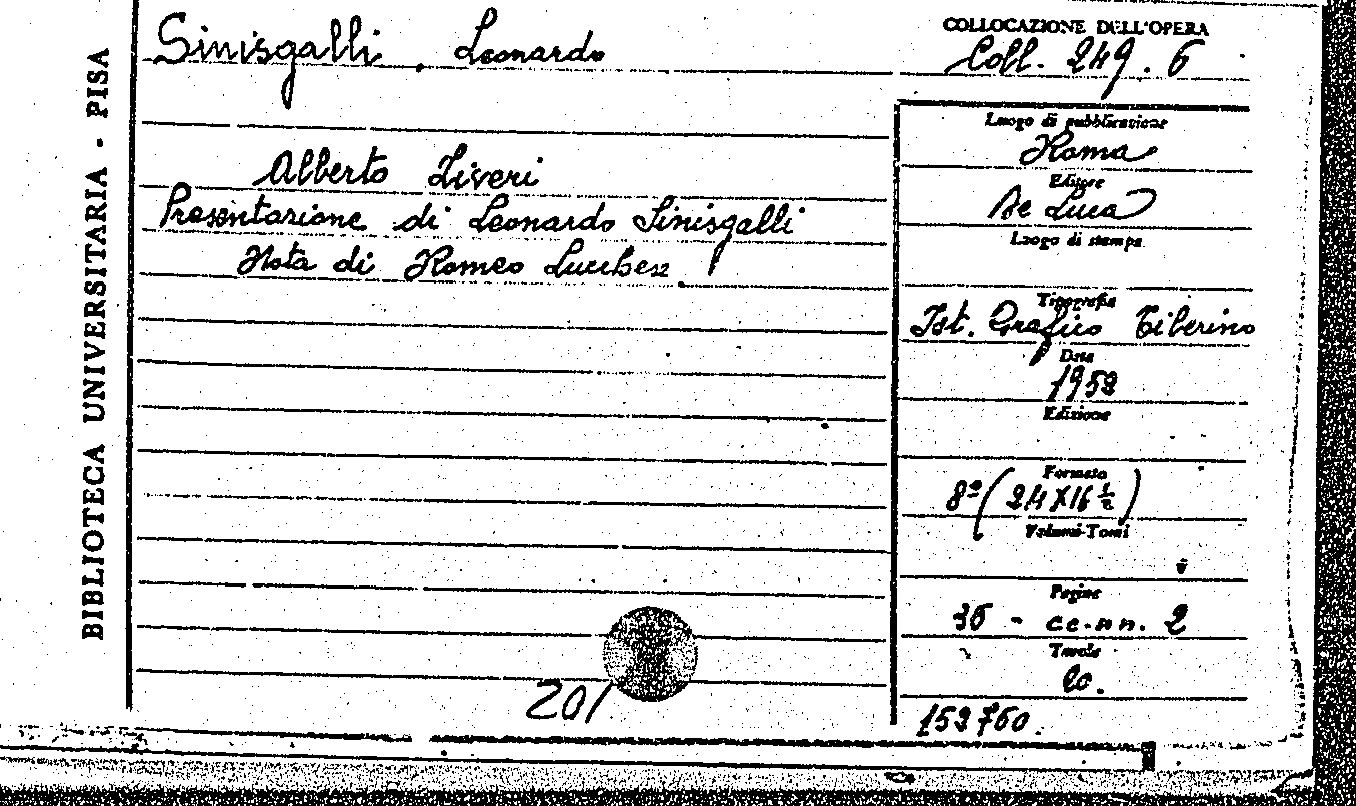 BIBLIOTECA UNIVERSITARIA - PISA
Sinisgalli, Leonardo
Alberto Ziveri
Presentazione di Leonardo Sinisgalli
Nota di Romeo Lucchese
201
COLLOCAZIONE DELL'OPERA
Coll. 249. 6
Luogo di pubblicazione
Roma
Editore
De Luca
Luogo di stampa
Tipografia
Ist. Grafico Tiberino
Data
1952
Edizione
Formato
8º (24X16 ½)
Volumi-Tomi
Pagine
36 - cc.nn. 2
Tavole
20.
152760.